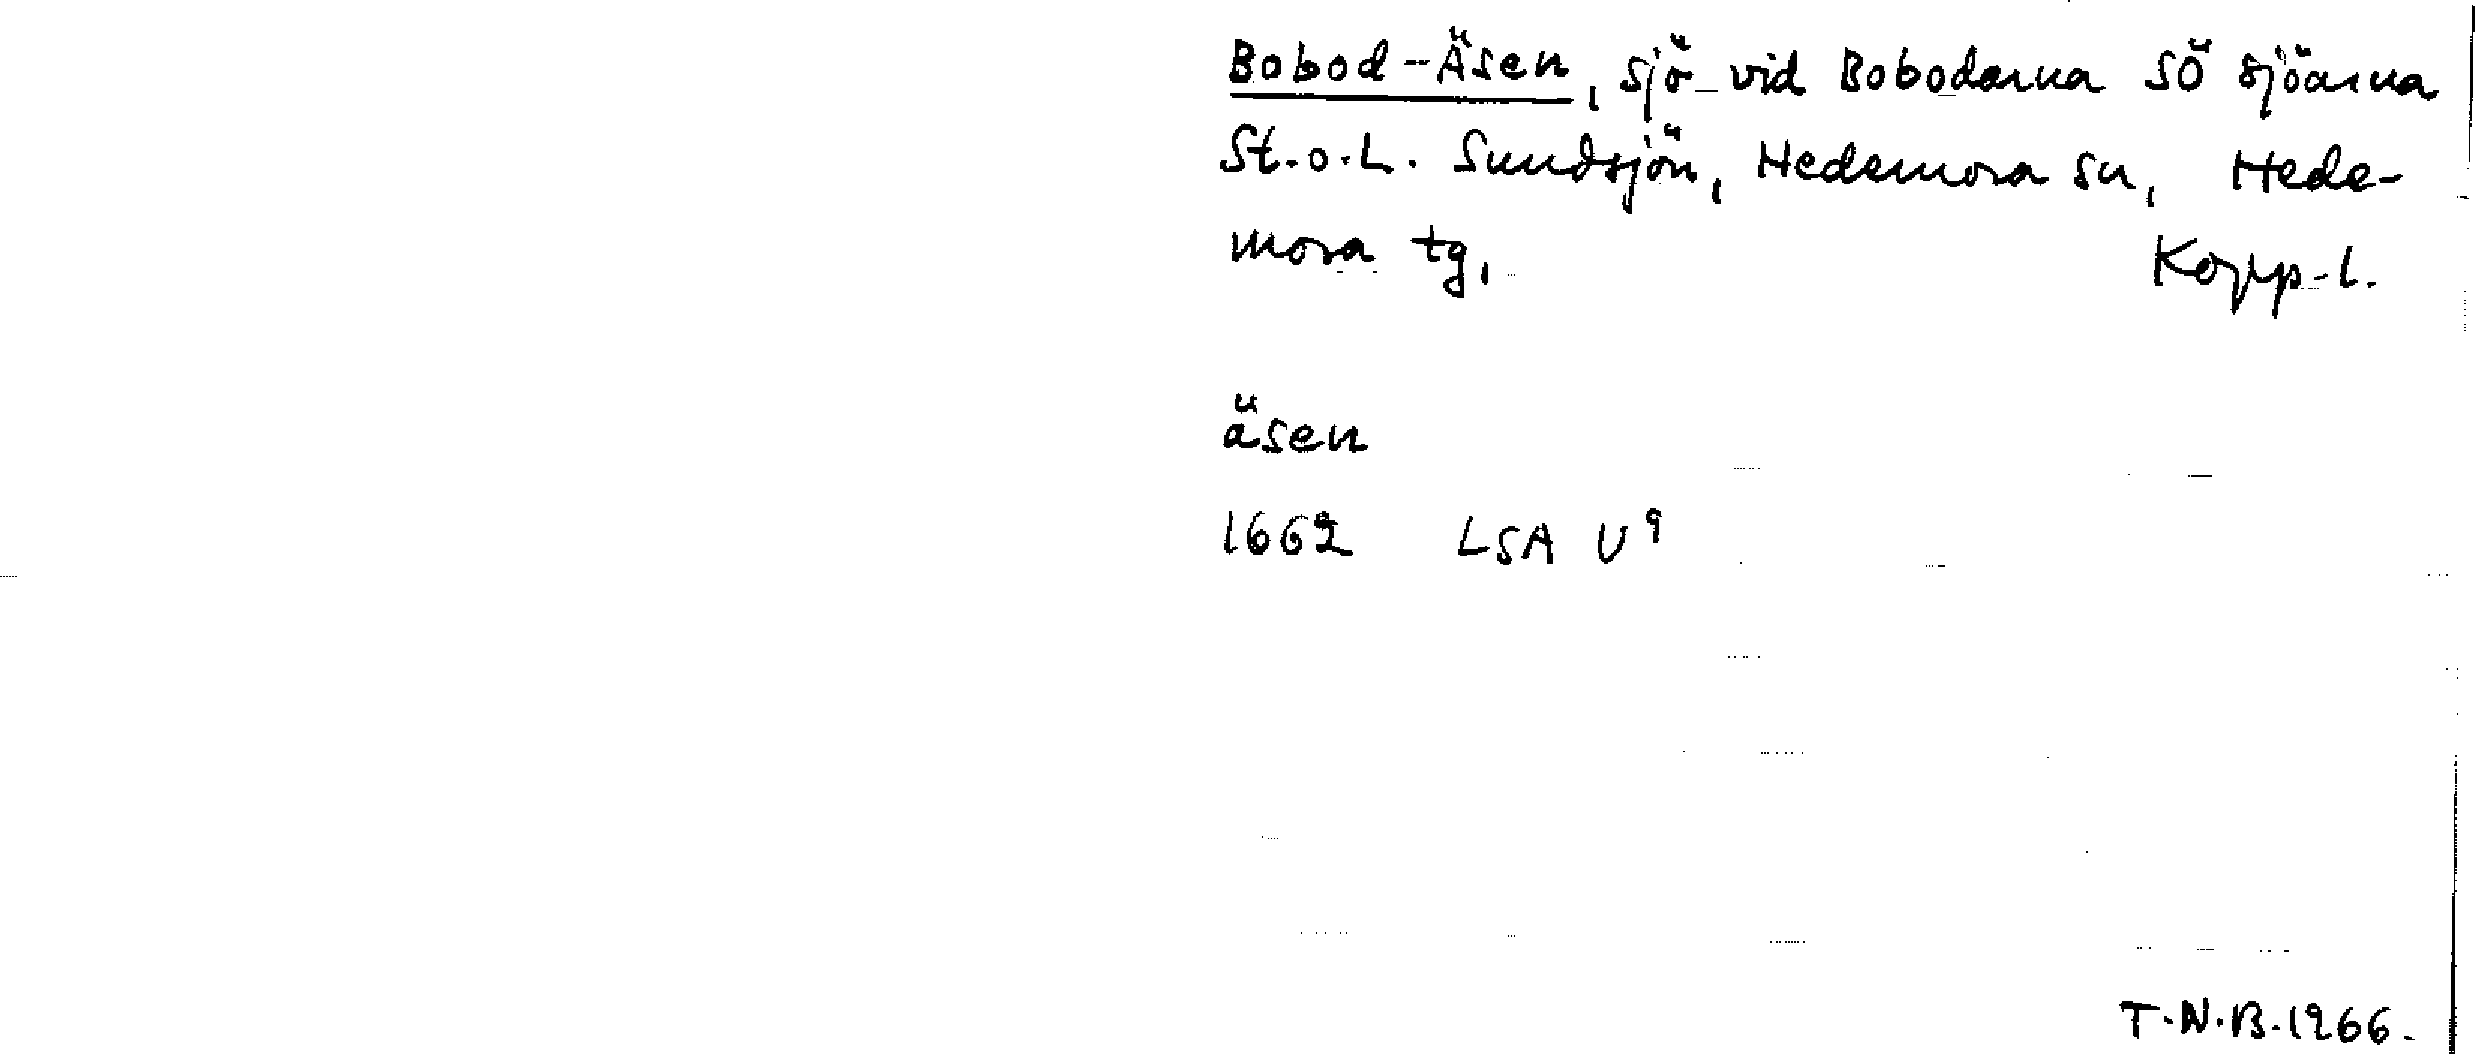 Bobod-Äsen, sjö vid Bobodarna SÖ sjöarna
St.o.L. Sundsjön, Hedemora sn, Hede-
mora tg, Kopp-l.
äsen
1662 LSA U9
T.N.B.1966.